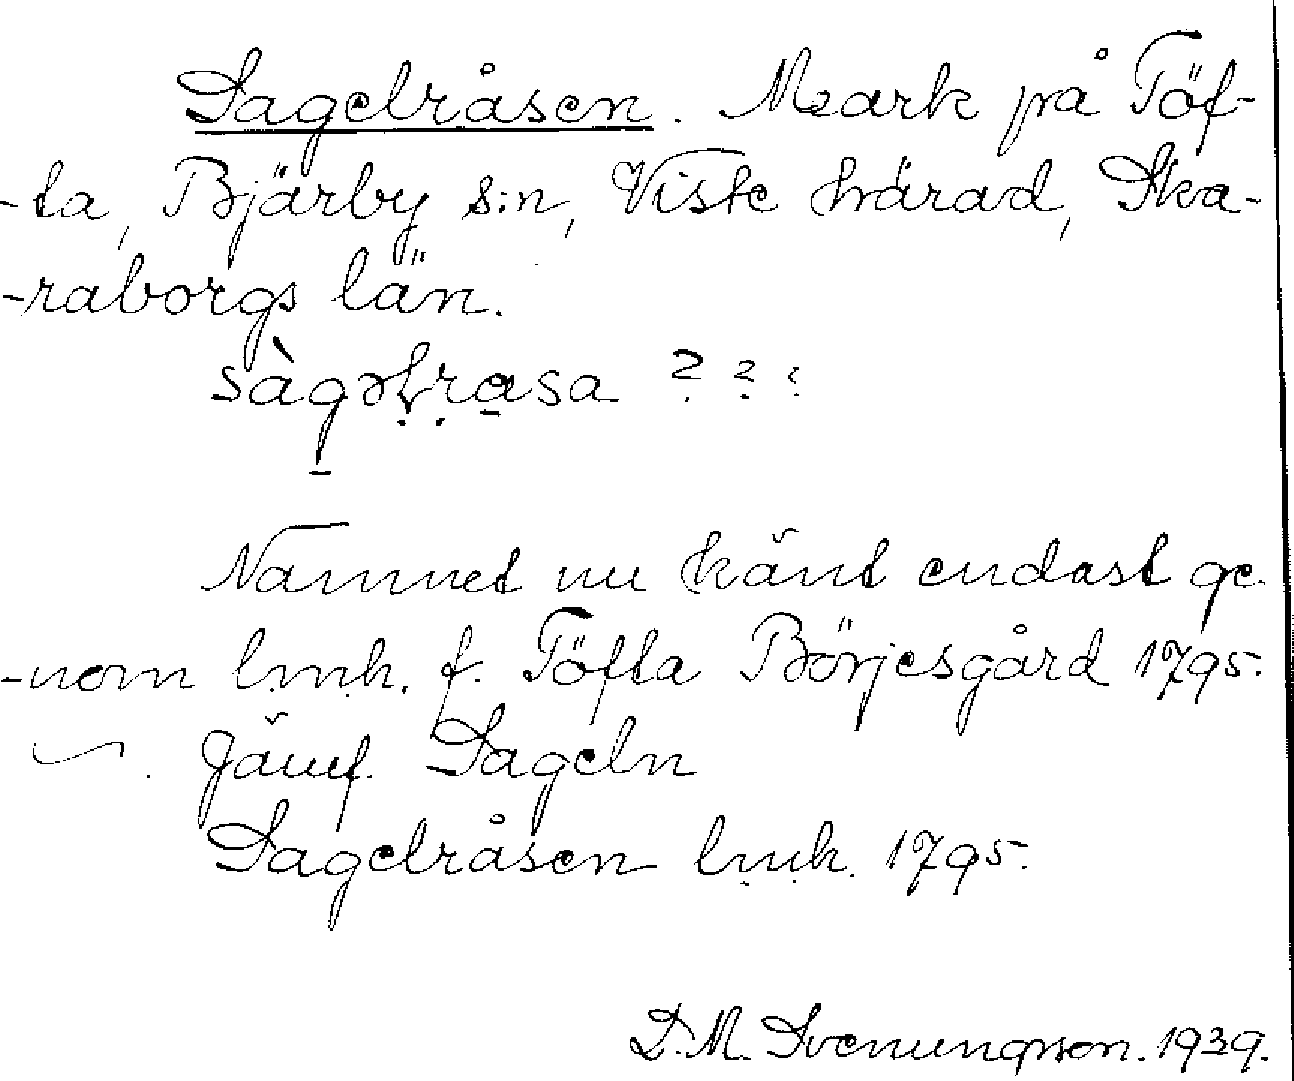 Sagelråsen. Mark på Töf-
-ta, Bjärby s:n, Viste härad, Ska-
-raborgs län.
sàgəḷṛa̱sa ? ? ?
Namnet nu känt endast ge-
-nom lmh. f. Töfta Börjesgård 1795.
Jämf. Sageln
Sagelråsen lmh. 1795.
D.M. Svenungsson. 1939.